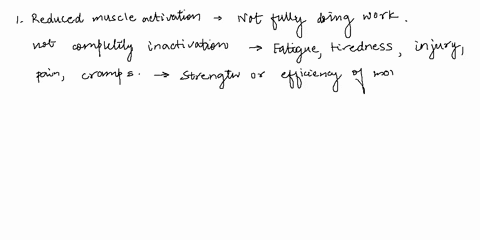 1. Reduced muscle activation → Not fully doing work.
not completily inactivation → Fatigue, tiredness, injury,
pain, cramps. → Strength or efficiency of